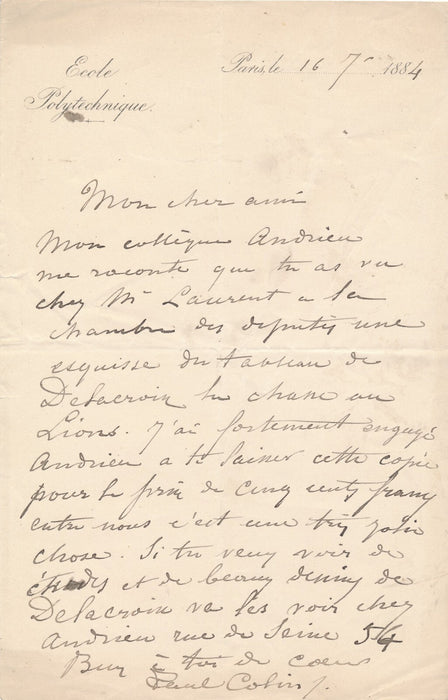 Ecole
Polytechnique.
Paris, le 16 7r 1884
Mon cher ami
Mon collègue Andrieu
me raconte que tu as vu
chez Mr Laurent a la
chambre des deputés une
esquisse du tableau de
Delacroix la chasse aux
Lions. J'ai fortement engagé
Andrieu a te laisser cette copie
pour le prix de cinq cents francs
entre nous c'est une très jolie
chose. Si tu veux voir de
études et de beaux dessins de
Delacroix va les voir chez
Andrieu rue de Seine 54
à toi de coeur
Paul Colin